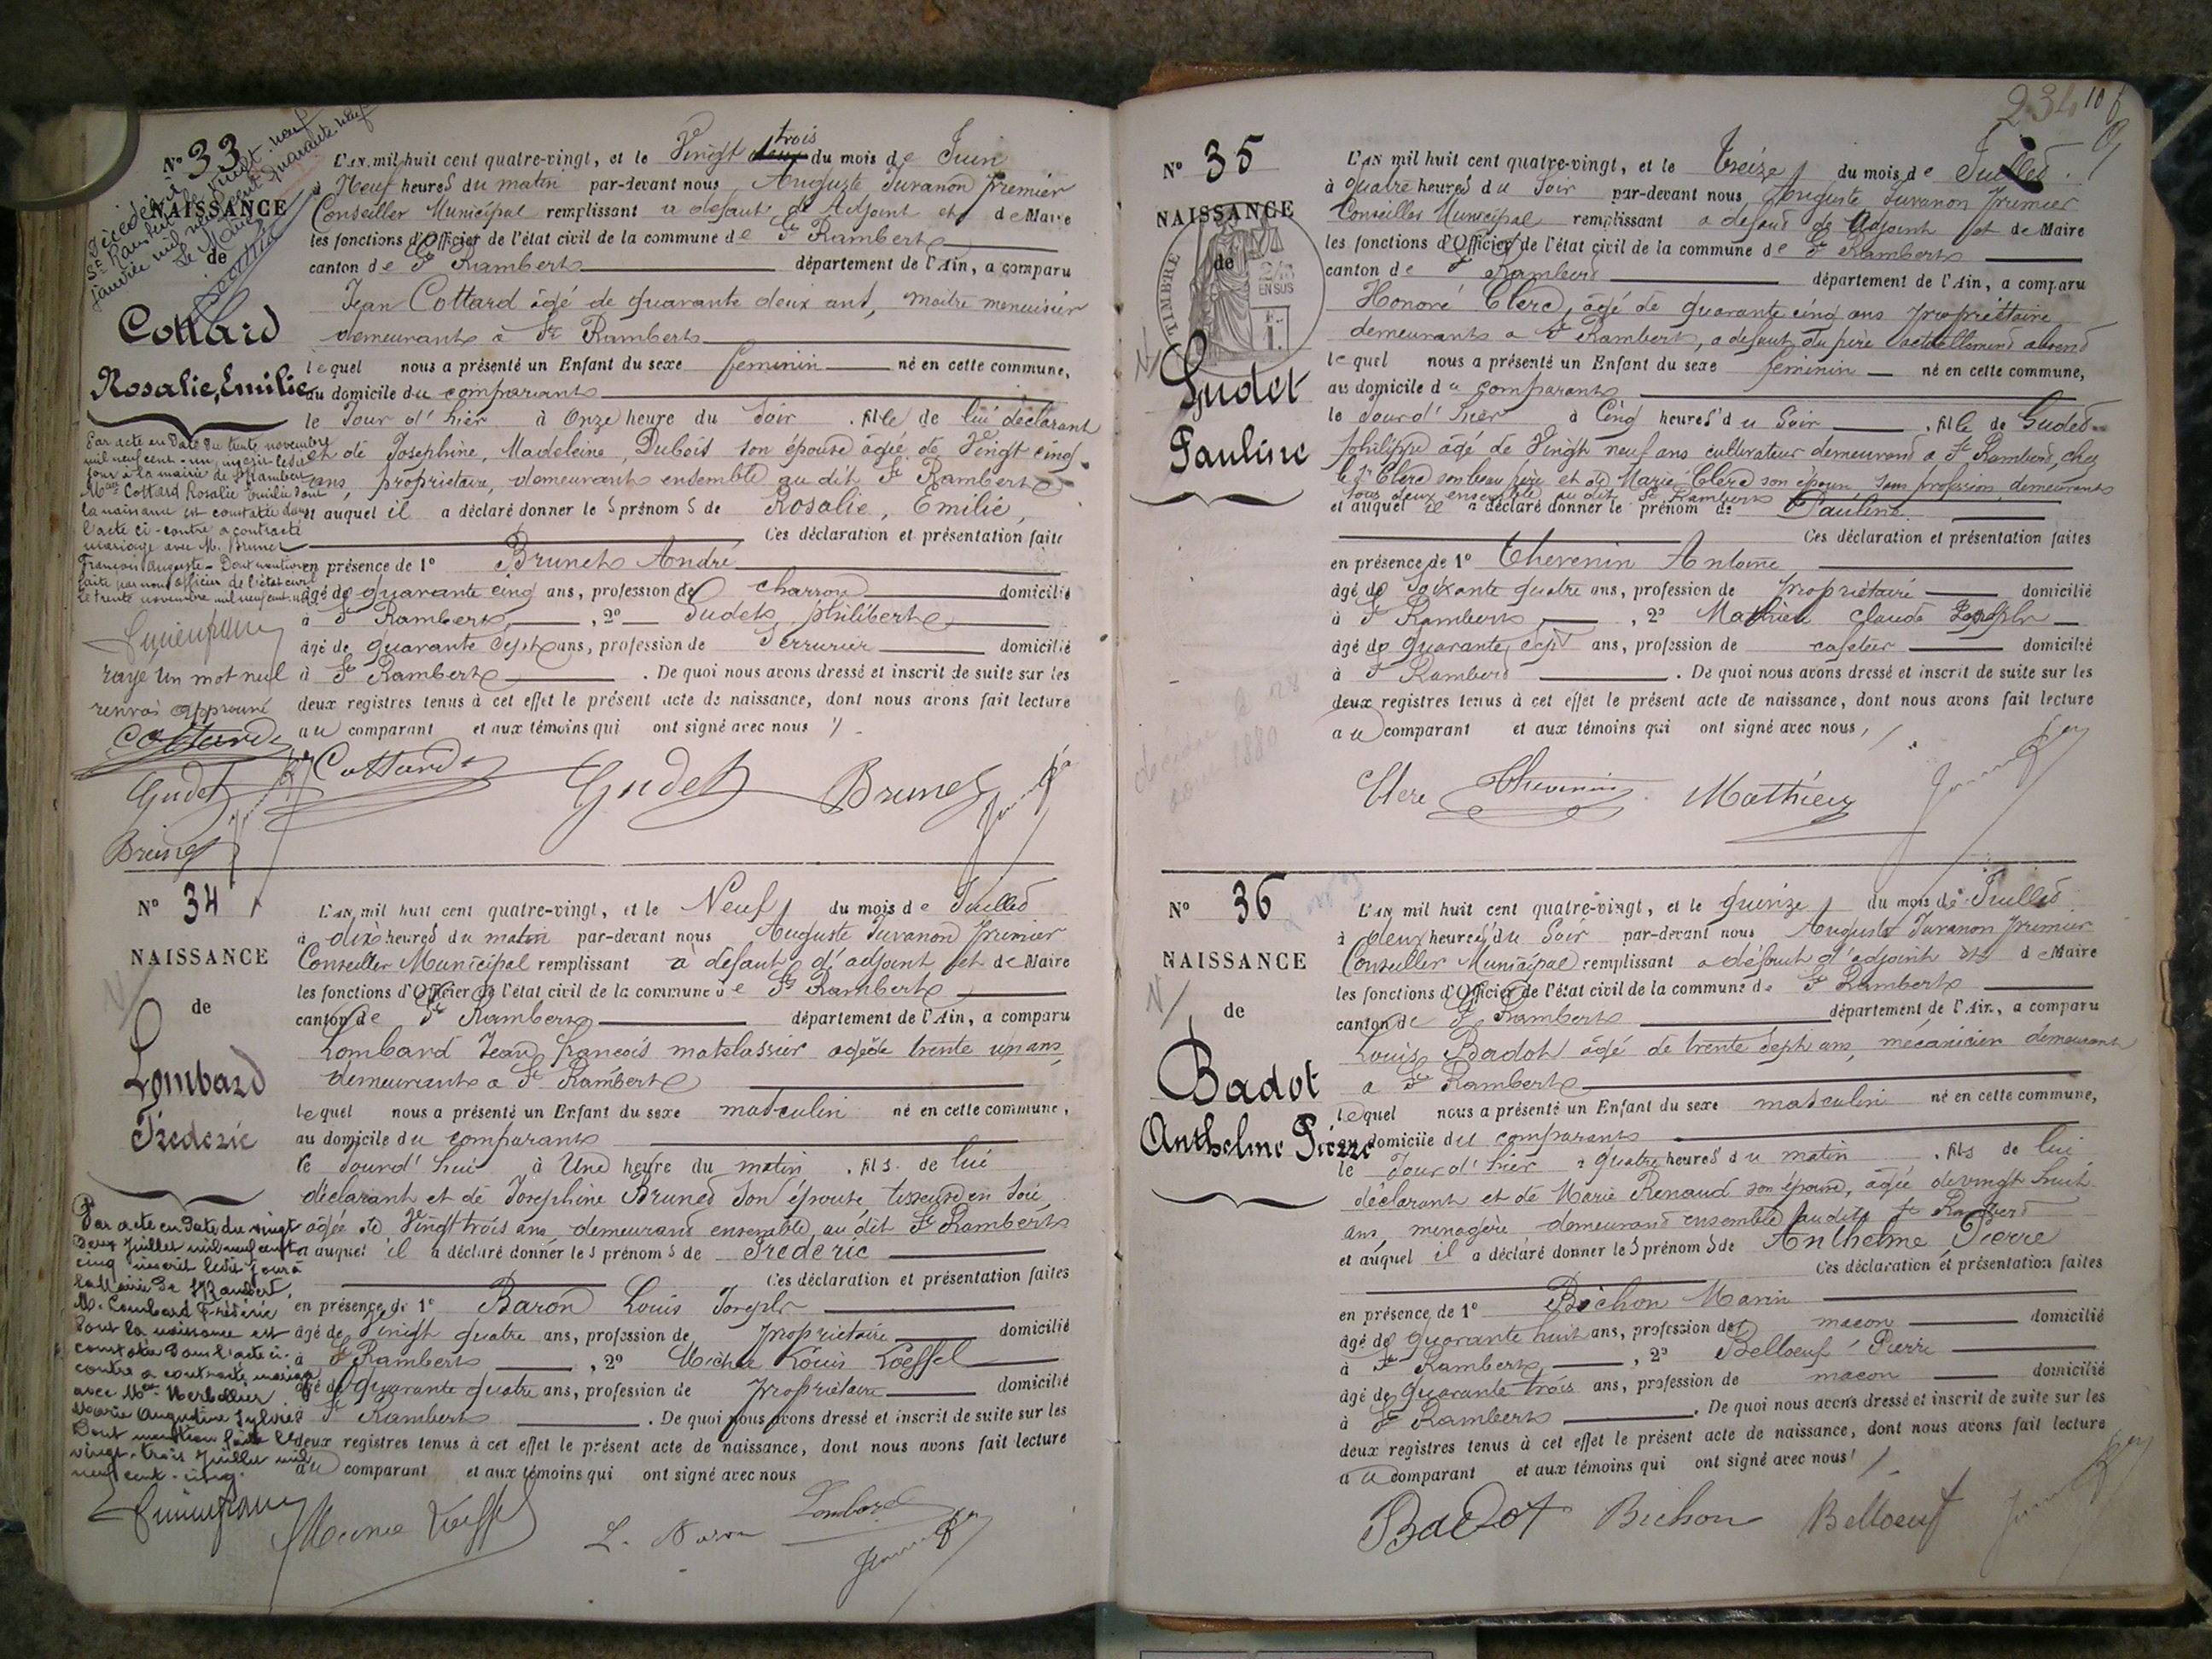 N° 33
NAISSANCE
de
Cottard
Rosalie, Emilie
Décédée à
St Rambert le vingt-neuf
janvier mil neuf cent quarante neuf
Le Maire
L'AN mil huit cent quatre-vingt, et le Vingt deux trois du mois de Juin
à Neuf heures du matin par-devant nous Auguste Juvanon premier
Conseiller Municipal remplissant a défaut de Adjoint et de Maire
les fonctions d'Officier de l'état civil de la commune de St Rambert
canton de St Rambert département de l'Ain, a comparu
Jean Cottard âgé de quarante deux ans, maitre menuisier
demeurant à St Rambert
lequel nous a présenté un Enfant du sexe feminin né en cette commune,
au domicile du comparant
le Jour d'hier à Onze heure du Soir . fille de lui déclarant
et de Josephine, Madeleine, Dubois son épouse âgée de Vingt cinq
ans, propriétaire, demeurant ensemble au dit St Rambert
et auquel il a déclaré donner les prénoms de Rosalie, Emilie,
Ces déclaration et présentation faites
en présence de 1° Brunet André
âgé de quarante cinq ans, profession de charron domicilié
à St Rambert, 2° Gudet, philibert
âgé de quarante sept ans, profession de Serrurier domicilié
à St Rambert . De quoi nous avons dressé et inscrit de suite sur les
deux registres tenus à cet effet le présent acte de naissance, dont nous avons fait lecture
au comparant et aux témoins qui ont signé avec nous
Par acte en date du trente novembre
mil neuf cent-un, inscrit ledit
jour à la mairie de St Rambert
Melle Cottard Rosalie Emilie dont
la naissance est constatée dans
l'acte ci-contre a contracté
mariage avec M. Brunet
François Auguste - Dont mention
faite par nous officier de l'état civil
le trente novembre mil neuf cent-un
rayé un mot nul
renvoi approuvé
Cottard
Gudet
Brunet
Cottard Gudet Brunet
N° 34
NAISSANCE
de
Lombard
Frederic
L'AN mil huit cent quatre-vingt, et le Neuf du mois de Juillet
à dix heures du matin par-devant nous Auguste Juvanon premier
Conseiller Municipal remplissant à défaut d'adjoint et de Maire
les fonctions d'Officier de l'état civil de la commune de St Rambert
canton de St Rambert département de l'Ain, a comparu
Lombard Jean françois matelassier agé de trente un ans
demeurant a St Rambert
lequel nous a présenté un Enfant du sexe masculin né en cette commune,
au domicile du comparant
le Jourd'hui à Une heure du matin . fils de lui
déclarant et de Josephine Brunet son épouse tisseuse en Soie
agée de Vingt trois ans demeurant ensemble au dit St Rambert
et auquel il a déclaré donner les prénoms de Frederic
Ces déclaration et présentation faites
en présence de 1° Baron Louis Joseph
âgé de Vingt quatre ans, profession de propriétaire domicilié
à St Rambert, 2° Michel Louis Koeffel
âgé de Quarante quatre ans, profession de propriétaire domicilié
à St Rambert . De quoi nous avons dressé et inscrit de suite sur les
deux registres tenus à cet effet le présent acte de naissance, dont nous avons fait lecture
au comparant et aux témoins qui ont signé avec nous
Par acte en date du vingt
deux Juillet mil neuf cent
cinq inscrit ledit jour à
la Mairie de St Rambert,
M. Lombard Frédéric
dont la naissance est
constatée dans l'acte ci-
contre a contracté mariage
avec Melle
Marie Augustine Sylvie
Dont mention faite le
vingt-trois Juillet mil
neuf cent-cinq.
L. Baron Lombard
234
N° 35
NAISSANCE
de
TIMBRE
2/10
EN SUS
Gudet
Pauline
L'AN mil huit cent quatre-vingt, et le treize du mois de Juillet
à quatre heures du Soir par-devant nous Auguste Juvanon premier
Conseiller Municipal remplissant a défaut de Adjoint et de Maire
les fonctions d'Officier de l'état civil de la commune de St Rambert
canton de St Rambert département de l'Ain, a comparu
Honoré Clerc, âgé de quarante cinq ans propriétaire
demeurant a St Rambert, a defaut du père actuellement absent
lequel nous a présenté un Enfant du sexe feminin né en cette commune,
au domicile du comparant
le Jourd'hier à Cinq heures du Soir , fille de Gudet
philippe âgé de Vingt neuf ans cultivateur demeurant a St Rambert, chez
le Sr Clerc son beau père et de Marie Clerc son épouse sans profession, demeurant
tous deux ensemble au dit St Rambert
et auquel il a déclaré donner le prénom de Pauline
Ces déclaration et présentation faites
en présence de 1° Thevenin Antoine
âgé de Soixante quatre ans, profession de propriétaire domicilié
à St Rambert, 2° Mathieu Claude Joseph
âgé de Quarante sept ans, profession de cafetier domicilié
à St Rambert . De quoi nous avons dressé et inscrit de suite sur les
deux registres tenus à cet effet le présent acte de naissance, dont nous avons fait lecture
au comparant et aux témoins qui ont signé avec nous,
Clerc Thevenin Mathieu
N° 36
NAISSANCE
de
Badot
Anthelme Pierre
L'AN mil huit cent quatre-vingt, et le quinze du mois de Juillet
à deux heures du Soir par-devant nous Auguste Juvanon premier
Conseiller Municipal remplissant a défaut d'adjoint et de Maire
les fonctions d'Officier de l'état civil de la commune de St Rambert
canton de St Rambert département de l'Ain, a comparu
Louis Badot âgé de trente sept ans, mécanicien demeurant
a St Rambert
lequel nous a présenté un Enfant du sexe masculin né en cette commune,
au domicile du comparant
le Jourd'hier à quatre heures du matin . fils de lui
déclarant et de Marie Renaud son épouse, agée de vingt huit
ans, menagère demeurant ensemble au dit St Rambert
et auquel il a déclaré donner les prénoms de Anthelme Pierre
Ces déclaration et présentation faites
en présence de 1° Bichon Marin
âgé de quarante huit ans, profession de macon domicilié
à St Rambert, 2° Belloeuf Pierre
âgé de quarante trois ans, profession de macon domicilié
à St Rambert . De quoi nous avons dressé et inscrit de suite sur les
deux registres tenus à cet effet le présent acte de naissance, dont nous avons fait lecture
au comparant et aux témoins qui ont signé avec nous
Badot Bichon Belloeuf